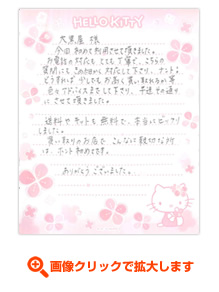 HELLO KITTY
大黒屋 様
今回 初めて利用させて頂きました。
お電話の対応も とても 丁寧で、こちらの
質問にも この細かく 対応して下さり、
どう すれば 少しでも お高く 買い取れるか 等
色々 アドバイスまで して下さり、 その通り
に させて 頂きました。
送料や キットも 無料で、 本当に ビックリ
しました。
買い取りの お店で、 こんなに 親切な 所
は、 ホント 初めてです。
ありがとう ございました…
画像クリックで拡大します